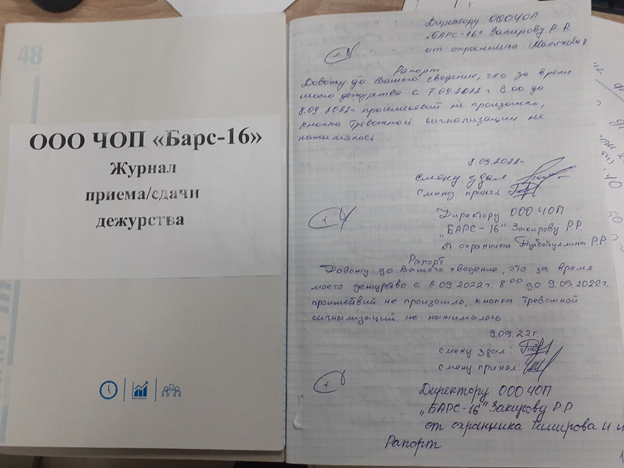 48
ООО ЧОП «Барс-16»
Журнал
приема/сдачи
дежурства
Директору ООО ЧОП
„БАРС-16" Закирову Р.Р.
от охранника
Рапорт
Довожу до Вашего сведение, что за время
моего дежурства с 7.09.2022г 8.00 до
8.09.2022г. происшествий не произошло,
кнопка тревожной сигнализации не
нажималось
8.09.2022г.
смену сдал
смену принял
Директору ООО ЧОП
„БАРС-16" Закирову Р.Р.
от охранника Р.Р.
Рапорт
Довожу до Вашего сведение, что за время
моего дежурство с 8.09.2022г. 8 00 до 9.09.2022г.
происшествий не произошло, кнопка тревожной
сигнализаций не нажималось
9.09.22г.
смену сдал:
смену принял:
Директору ООО ЧОП
„БАРС-16" Закирову Р.Р
от охранника Тимирова И.И
Рапорт